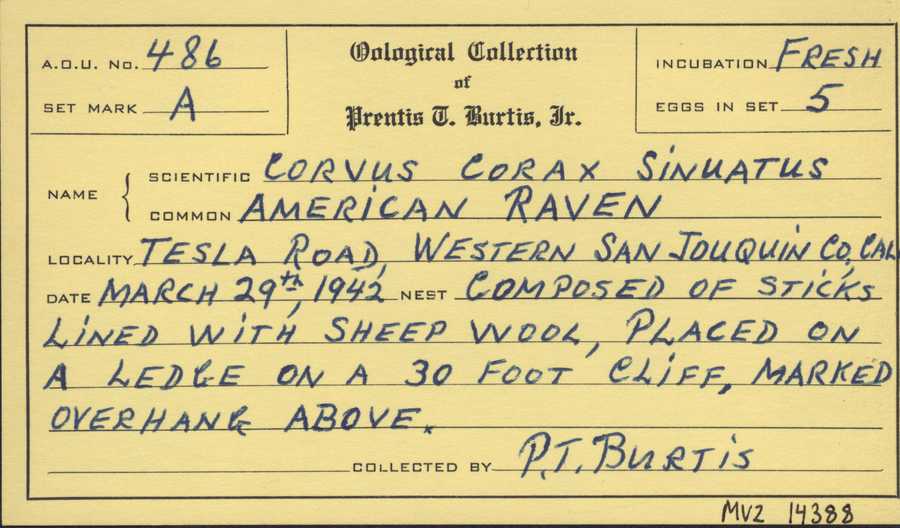 A.O.U. No. 486
SET MARK A
Oological Collection
of
Prentis T. Burtis, Jr.
INCUBATION FRESH
EGGS IN SET 5
NAME { SCIENTIFIC CORVUS CORAX SINUATUS
COMMON AMERICAN RAVEN
LOCALITY TESLA ROAD, WESTERN SAN JOUQUIN CO, CAL
DATE MARCH 29th, 1942 NEST COMPOSED OF STICKS
LINED WITH SHEEP WOOL, PLACED ON
A LEDGE ON A 30 FOOT CLIFF, MARKED
OVERHANG ABOVE.
COLLECTED BY P.T. BURTIS
MVZ 14388